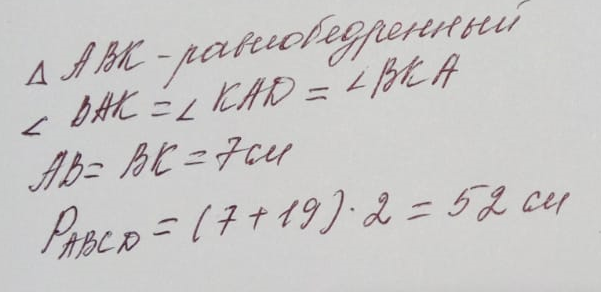 Δ ABK - равнобедренный
∠ BAK = ∠ KAD = ∠ BKA
AB = BK = 7 см
P ABCD = (7 + 19) · 2 = 52 см